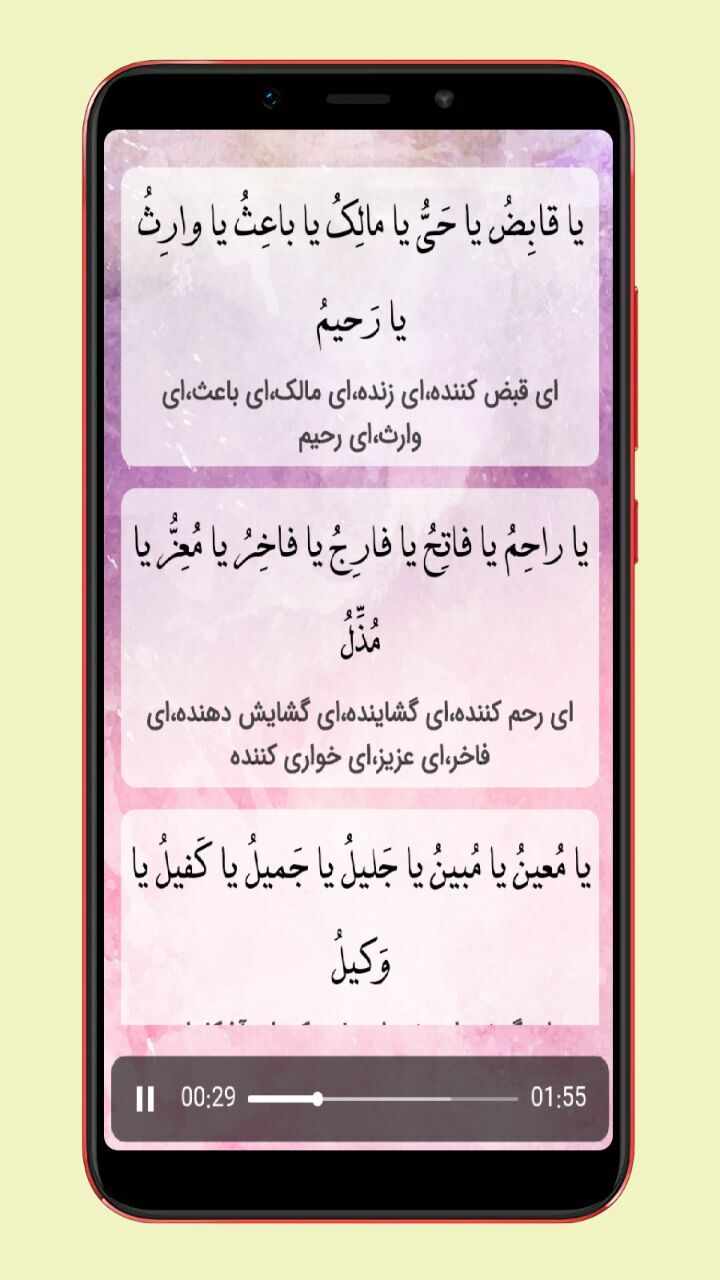 یا قابِضُ یا حَیُّ یا مالِکُ یا باعِثُ یا وارِثُ
یا رَحیمُ
ای قبض کننده،ای زنده،ای مالک،ای باعث،ای
وارث،ای رحیم
یا راحِمُ یا فاتِحُ یا فارِجُ یا فاخِرُ یا مُعِزُّ یا
مُذِّلُ
ای رحم کننده،ای گشاینده،ای گشایش دهنده،ای
فاخر،ای عزیز،ای خواری کننده
یا مُعینُ یا مُبینُ یا جَلیلُ یا جَمیلُ یا کَفیلُ یا
وَکیلُ
00:29 01:55